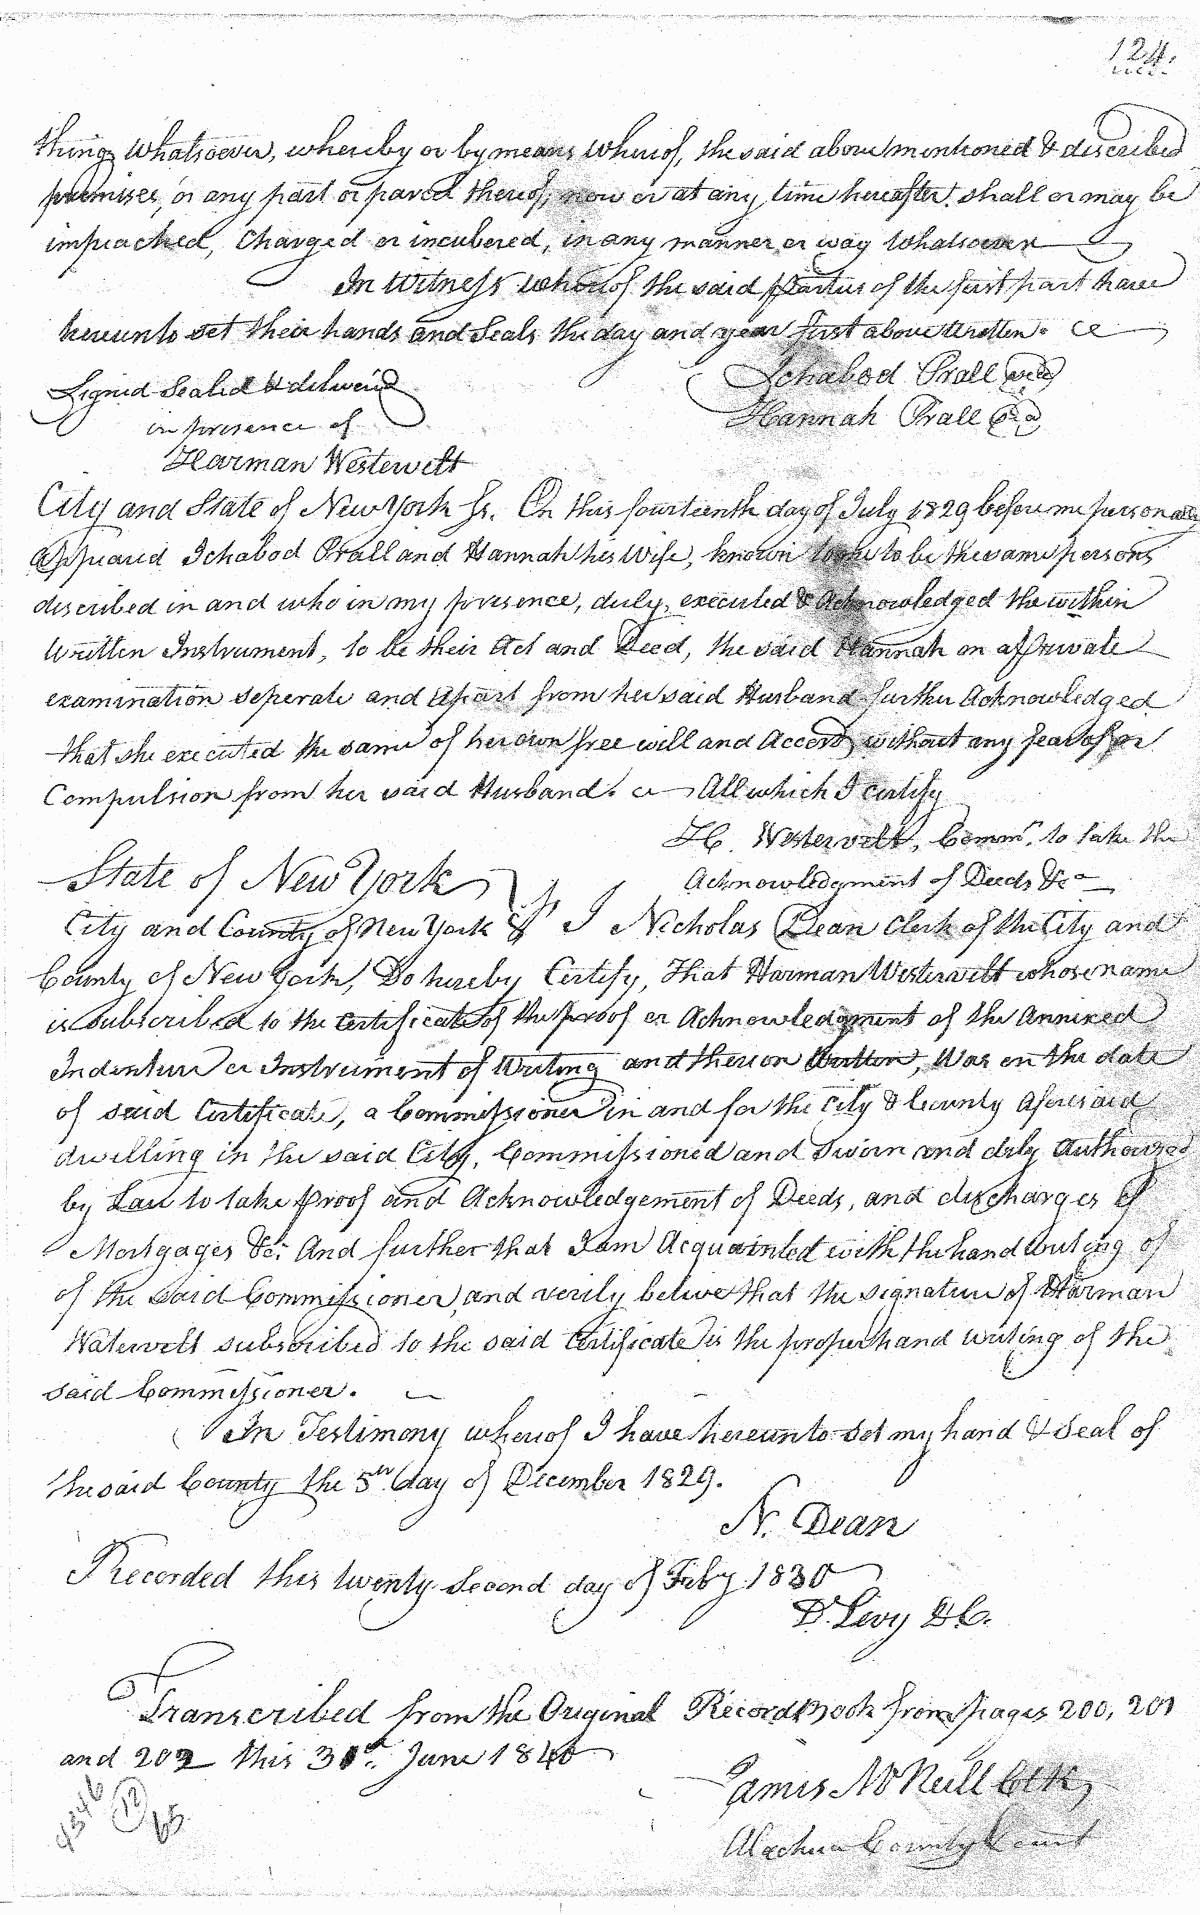 124.
thing whatsoever, whereby or by means whereof, the said above mentioned & described
premises, or any part or parcel thereof, now or at any time hereafter shall or may be
impeached, Charged or incubered, in any manner or way whatsoever
In Witness whereof the said parties of the first part have
hereunto set their hands and Seals the day and year first above written.
Signed Sealed & delivered
Ichabod Prall
in presence of
Hannah Prall
Harman Westervelt
City and State of New York Ss. On this fourteenth day of July 1829 before me personally
appeared Ichabod Prall and Hannah his Wife, known to me to be the same persons
discribed in and who in my presence, duly executed & Acknowledged the within
Written Instrument, to be their Act and Deed, the said Hannah on a private
examination seperate and apart from her said Husband further Acknowledged
that she executed the same of her own free will and Accord, without any fear of or
Compulsion from her said Husband. All which I certify
H. Westervelt, Commr. to take the
Acknowledgment of Deeds &ca
State of New York
City and County of New York Ss I Nicholas Dean Clerk of the City and
County of New York, Do hereby Certify, That Harman Westervelt whose name
is subscribed to the certificate of the proof or Acknowledgment of the Annexed
Indenture or Instrument of Writing and thereon Written, Was on the date
of said Certificate, a Commissioner in and for the city & County aforesaid
dwelling in the said City, Commissioned and Sworn and duly Authorized
by Law to take proof and Acknowledgement of Deeds, and discharges of
Mortgages &c: And further that I am Acquainted with the hand writing of
of the said Commissioner, and verily believe that the signature of Harman
Watervelt subscribed to the said Certificate is the proper hand writing of the
said Commissioner.
In Testimony whereof I have hereunto set my hand & Seal of
the said County the 5th day of December 1829.
N. Dean
Recorded this twenty second day of Feby 1830
D. Levy D C.
Transcribed from the Original Record Book from pages 200, 201
and 202 this 30th June 1840
James McNeill Clk
Alachua County Court
4346
12
65